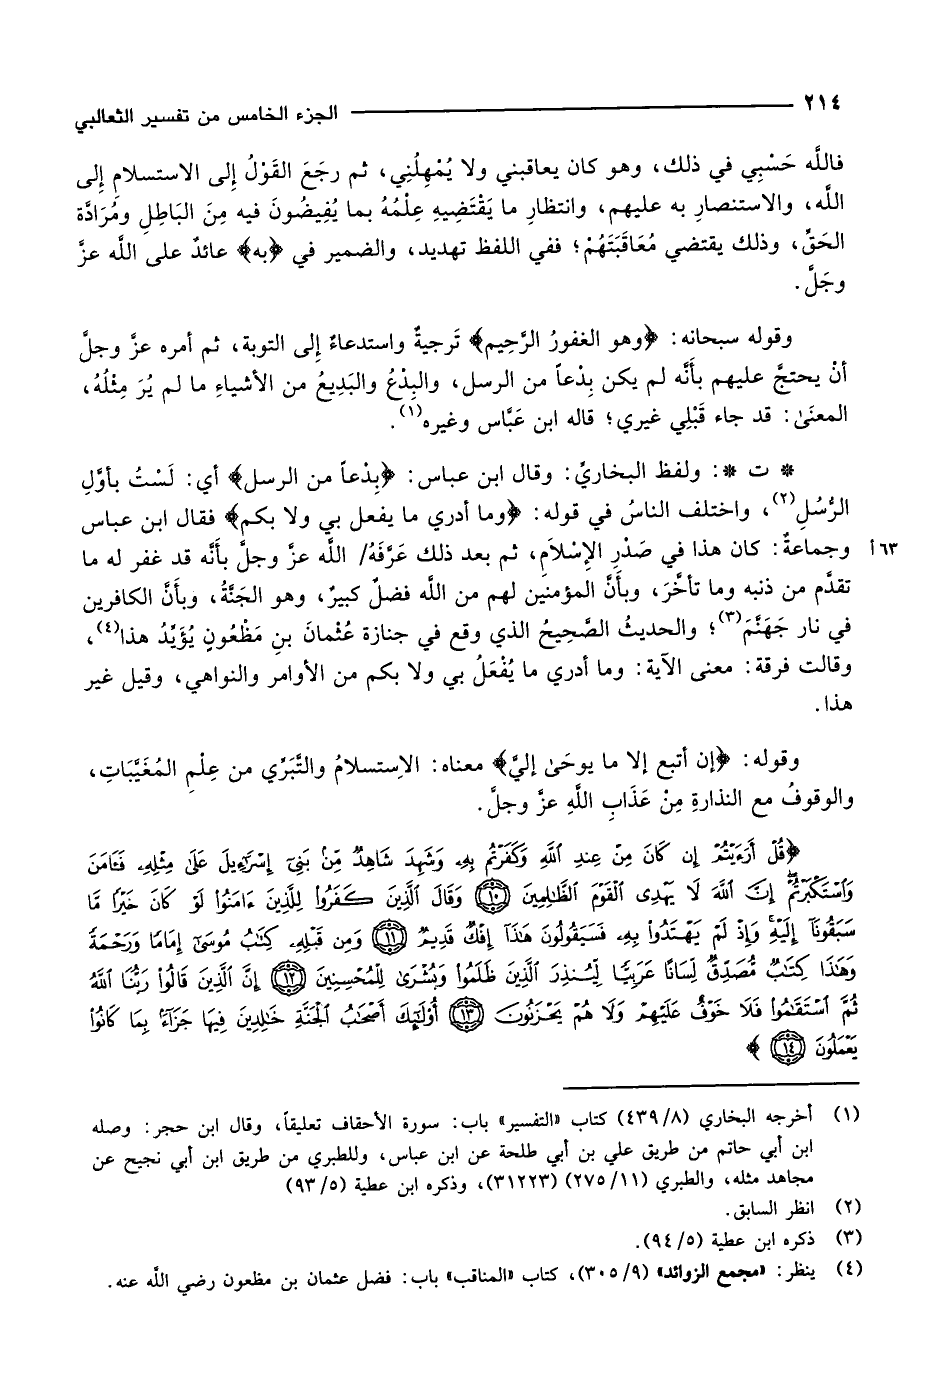 ٢١٤ الجزء الخامس من تفسير الثعالبي
فاللَّه حَسْبِي في ذلك، وهو كان يعاقبني ولا يُمْهِلُنِي، ثم رجَعَ القَوْلُ إِلى الاستسلامِ إِلى
اللَّه، والاستنصارِ به عليهم، وانتظارِ ما يَقْتَضِيهِ عِلْمُهُ بما يُفِيضُونَ فيه مِنَ البَاطِلِ ومُرَادَّة
الحَقِّ، وذلك يقتضي مُعَاقَبَتَهُمْ؛ ففي اللفظ تهديد، والضمير في ﴿به﴾ عائدٌ على اللَّه عزَّ
وجَلَّ.
وقوله سبحانه: ﴿وهو الغفورُ الرَّحِيم﴾ تَرجيةٌ واستدعاءٌ إِلى التوبة، ثم أمره عزَّ وجلَّ
أنْ يحتجَّ عليهم بأنَّه لم يكن بِدْعاً من الرسل، والبِدْعُ والبَدِيعُ من الأشياءِ ما لم يُرَ مِثْلُهُ،
المعنَىٰ: قد جاء قَبْلِي غيري؛ قاله ابن عَبَّاس وغيره(١).
* ت *: ولفظ البخاريِّ: وقال ابن عباس: ﴿بِدْعاً من الرسل﴾ أي: لَسْتُ بأوَّلِ
الرُّسُلِ(٢)، واختلف الناسُ في قوله: ﴿وما أدري ما يفعل بي ولا بكم﴾ فقال ابن عباس
٦٣ أ وجماعةٌ: كان هذا في صَدْرِ الإِسْلاَمِ، ثم بعد ذلك عَرَّفَهُ/ اللَّه عزَّ وجلَّ بأنَّه قد غفر له ما
تقدَّم من ذنبه وما تأخَّرَ، وبأنَّ المؤمنين لهم من اللَّه فضلٌ كبيرٌ، وهو الجَنَّةُ، وبأن الكافرين
في نار جَهَنَّمَ(٣)؛ والحديثُ الصَّحِيحُ الذي وقع في جنازة عُثْمانَ بنِ مَظْعُونٍ يُؤَيِّدُ هذا(٤)،
وقالت فرقة: معنى الآية: وما أدري ما يُفْعَلُ بي ولا بكم من الأوامر والنواهي، وقيل غير
هذا.
وقوله: ﴿إن أتبع إلا ما يوحَىٰ إليَّ﴾ معناه: الاِستسلامُ والتَّبَرِّي من عِلْمِ المُغَيَّبَاتِ،
والوقوفُ مع النذارةِ مِنْ عَذَابِ اللَّهِ عزَّ وجلَّ.
﴿قُلْ أَرَءَيْتُمْ إِن كَانَ مِنْ عِندِ اللَّهِ وَكَفَرْتُم بِهِۦ وَشَهِدَ شَاهِدٌ مِّنۢ بَنِىٓ إِسْرَٰٓءِيلَ عَلَىٰ مِثْلِهِۦ فَـَٔامَنَ
وَٱسْتَكْبَرْتُمْ إِنَّ ٱللَّهَ لَا يَهْدِى ٱلْقَوْمَ ٱلظَّـٰلِمِينَ ۝١٠ وَقَالَ ٱلَّذِينَ كَفَرُوا۟ لِلَّذِينَ ءَامَنُوا۟ لَوْ كَانَ خَيْرًا مَّا
سَبَقُونَآ إِلَيْهِ وَإِذْ لَمْ يَهْتَدُوا۟ بِهِۦ فَسَيَقُولُونَ هَـٰذَآ إِفْكٌ قَدِيمٌ ۝١١ وَمِن قَبْلِهِۦ كِتَـٰبُ مُوسَىٰٓ إِمَامًا وَرَحْمَةً
وَهَـٰذَا كِتَـٰبٌ مُّصَدِّقٌ لِّسَانًا عَرَبِيًّا لِّيُنذِرَ ٱلَّذِينَ ظَلَمُوا۟ وَبُشْرَىٰ لِلْمُحْسِنِينَ ۝١٢ إِنَّ ٱلَّذِينَ قَالُوا۟ رَبُّنَا ٱللَّهُ
ثُمَّ ٱسْتَقَـٰمُوا۟ فَلَا خَوْفٌ عَلَيْهِمْ وَلَا هُمْ يَحْزَنُونَ ۝١٣ أُو۟لَـٰٓئِكَ أَصْحَـٰبُ ٱلْجَنَّةِ خَـٰلِدِينَ فِيهَا جَزَآءًۢ بِمَا كَانُوا۟
يَعْمَلُونَ ۝١٤﴾
(١) أخرجه البخاري (٤٣٩/٨) كتاب «التفسير» باب: سورة الأحقاف تعليقاً، وقال ابن حجر: وصله
ابن أبي حاتم من طريق علي بن أبي طلحة عن ابن عباس، وللطبري من طريق ابن أبي نجيح عن
مجاهد مثله، والطبري (٢٧٥/١١) (٣١٢٢٣)، وذكره ابن عطية (٩٣/٥)
(٢) انظر السابق.
(٣) ذكره ابن عطية (٩٤/٥).
(٤) ينظر: «مجمع الزوائد» (٣٠٥/٩)، كتاب «المناقب» باب: فضل عثمان بن مظعون رضي اللَّه عنه.